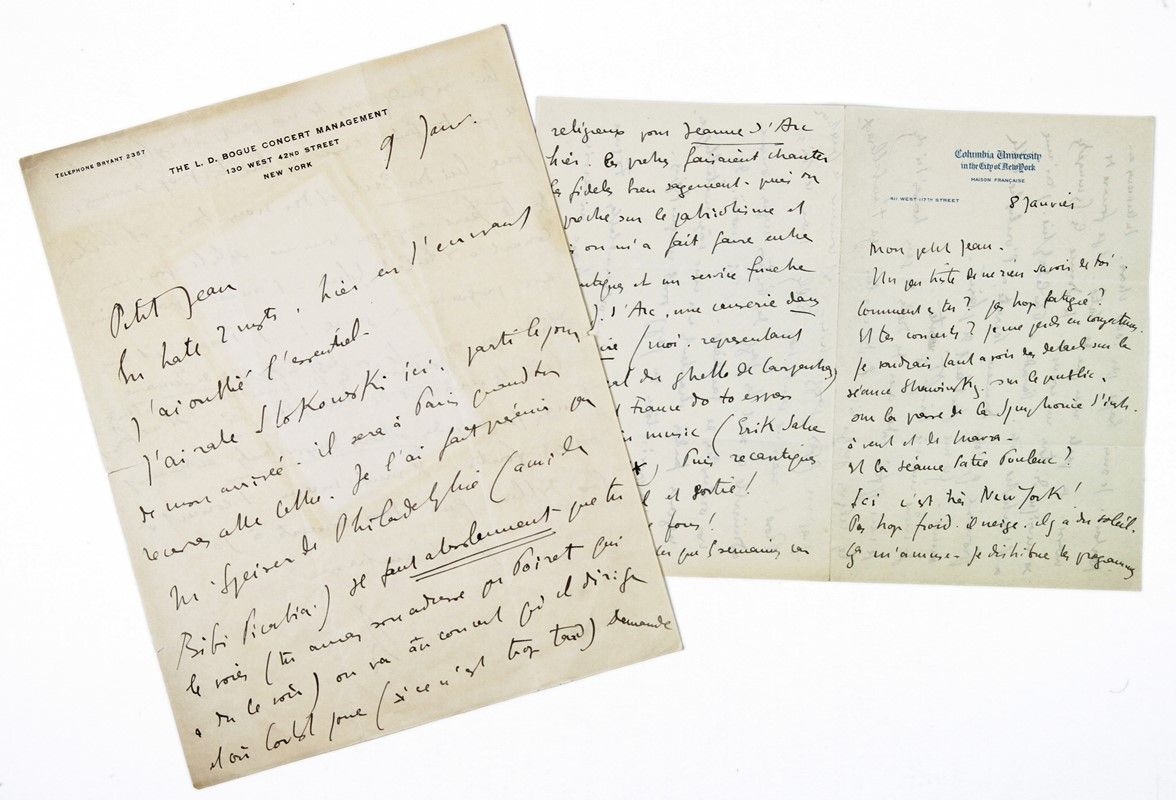 TELEPHONE BRYANT 2357
THE L. D. BOGUE CONCERT MANAGEMENT
130 WEST 42ND STREET
NEW YORK
9 Janv.
Petit Jean
En hate 2 mots, hier en t'envoyant
j'ai oublié l'essentiel.
J'ai raté Stokowski ici. parti le jour
de mon arrivée. il sera à Paris quand tu
recevras cette lettre. Je l'ai fait prévenir par
Mr Speiser de Philadelphie (ami de
Bibi Picabia.) il faut absolument que tu
le voies (tu auras son adresse par Poiret qui
a du le voir) ou va au concert qu'il dirige
et où Cortot joue (si ce n'est trop tard) demande
religieux pour Jeanne d'Arc
hier. les prêtres faisaient chanter
les fidèles bien sagement. puis on
prêche sur le patriotisme et
on m'a fait faire entre
cantiques et un service funèbre
J. d'Arc, une causerie dans
(moi. représentant
du ghetto de Carpentras)
France do to espress
in music (Erik Satie
) Puis recantiques
et sortie!
fous!
que 5 semaines
Columbia University
in the City of New York
MAISON FRANÇAISE
411 WEST 117TH STREET
8 Janvier
Mon petit Jean.
Un peu triste de ne rien savoir de toi
Comment vas tu? pas trop fatigué?
Et tes concerts? je me perds en conjectures.
Je voudrais tant avoir des détails sur la
séance Strawinsky. sur le public.
sur la presse de la Symphonie d'inst.
à vent et de Mavra.
Et la séance Satie Poulenc?
Ici c'est très New York!
Pas trop froid. il neige. il y a du soleil.
Ça m'amuse. Je distribue les programmes